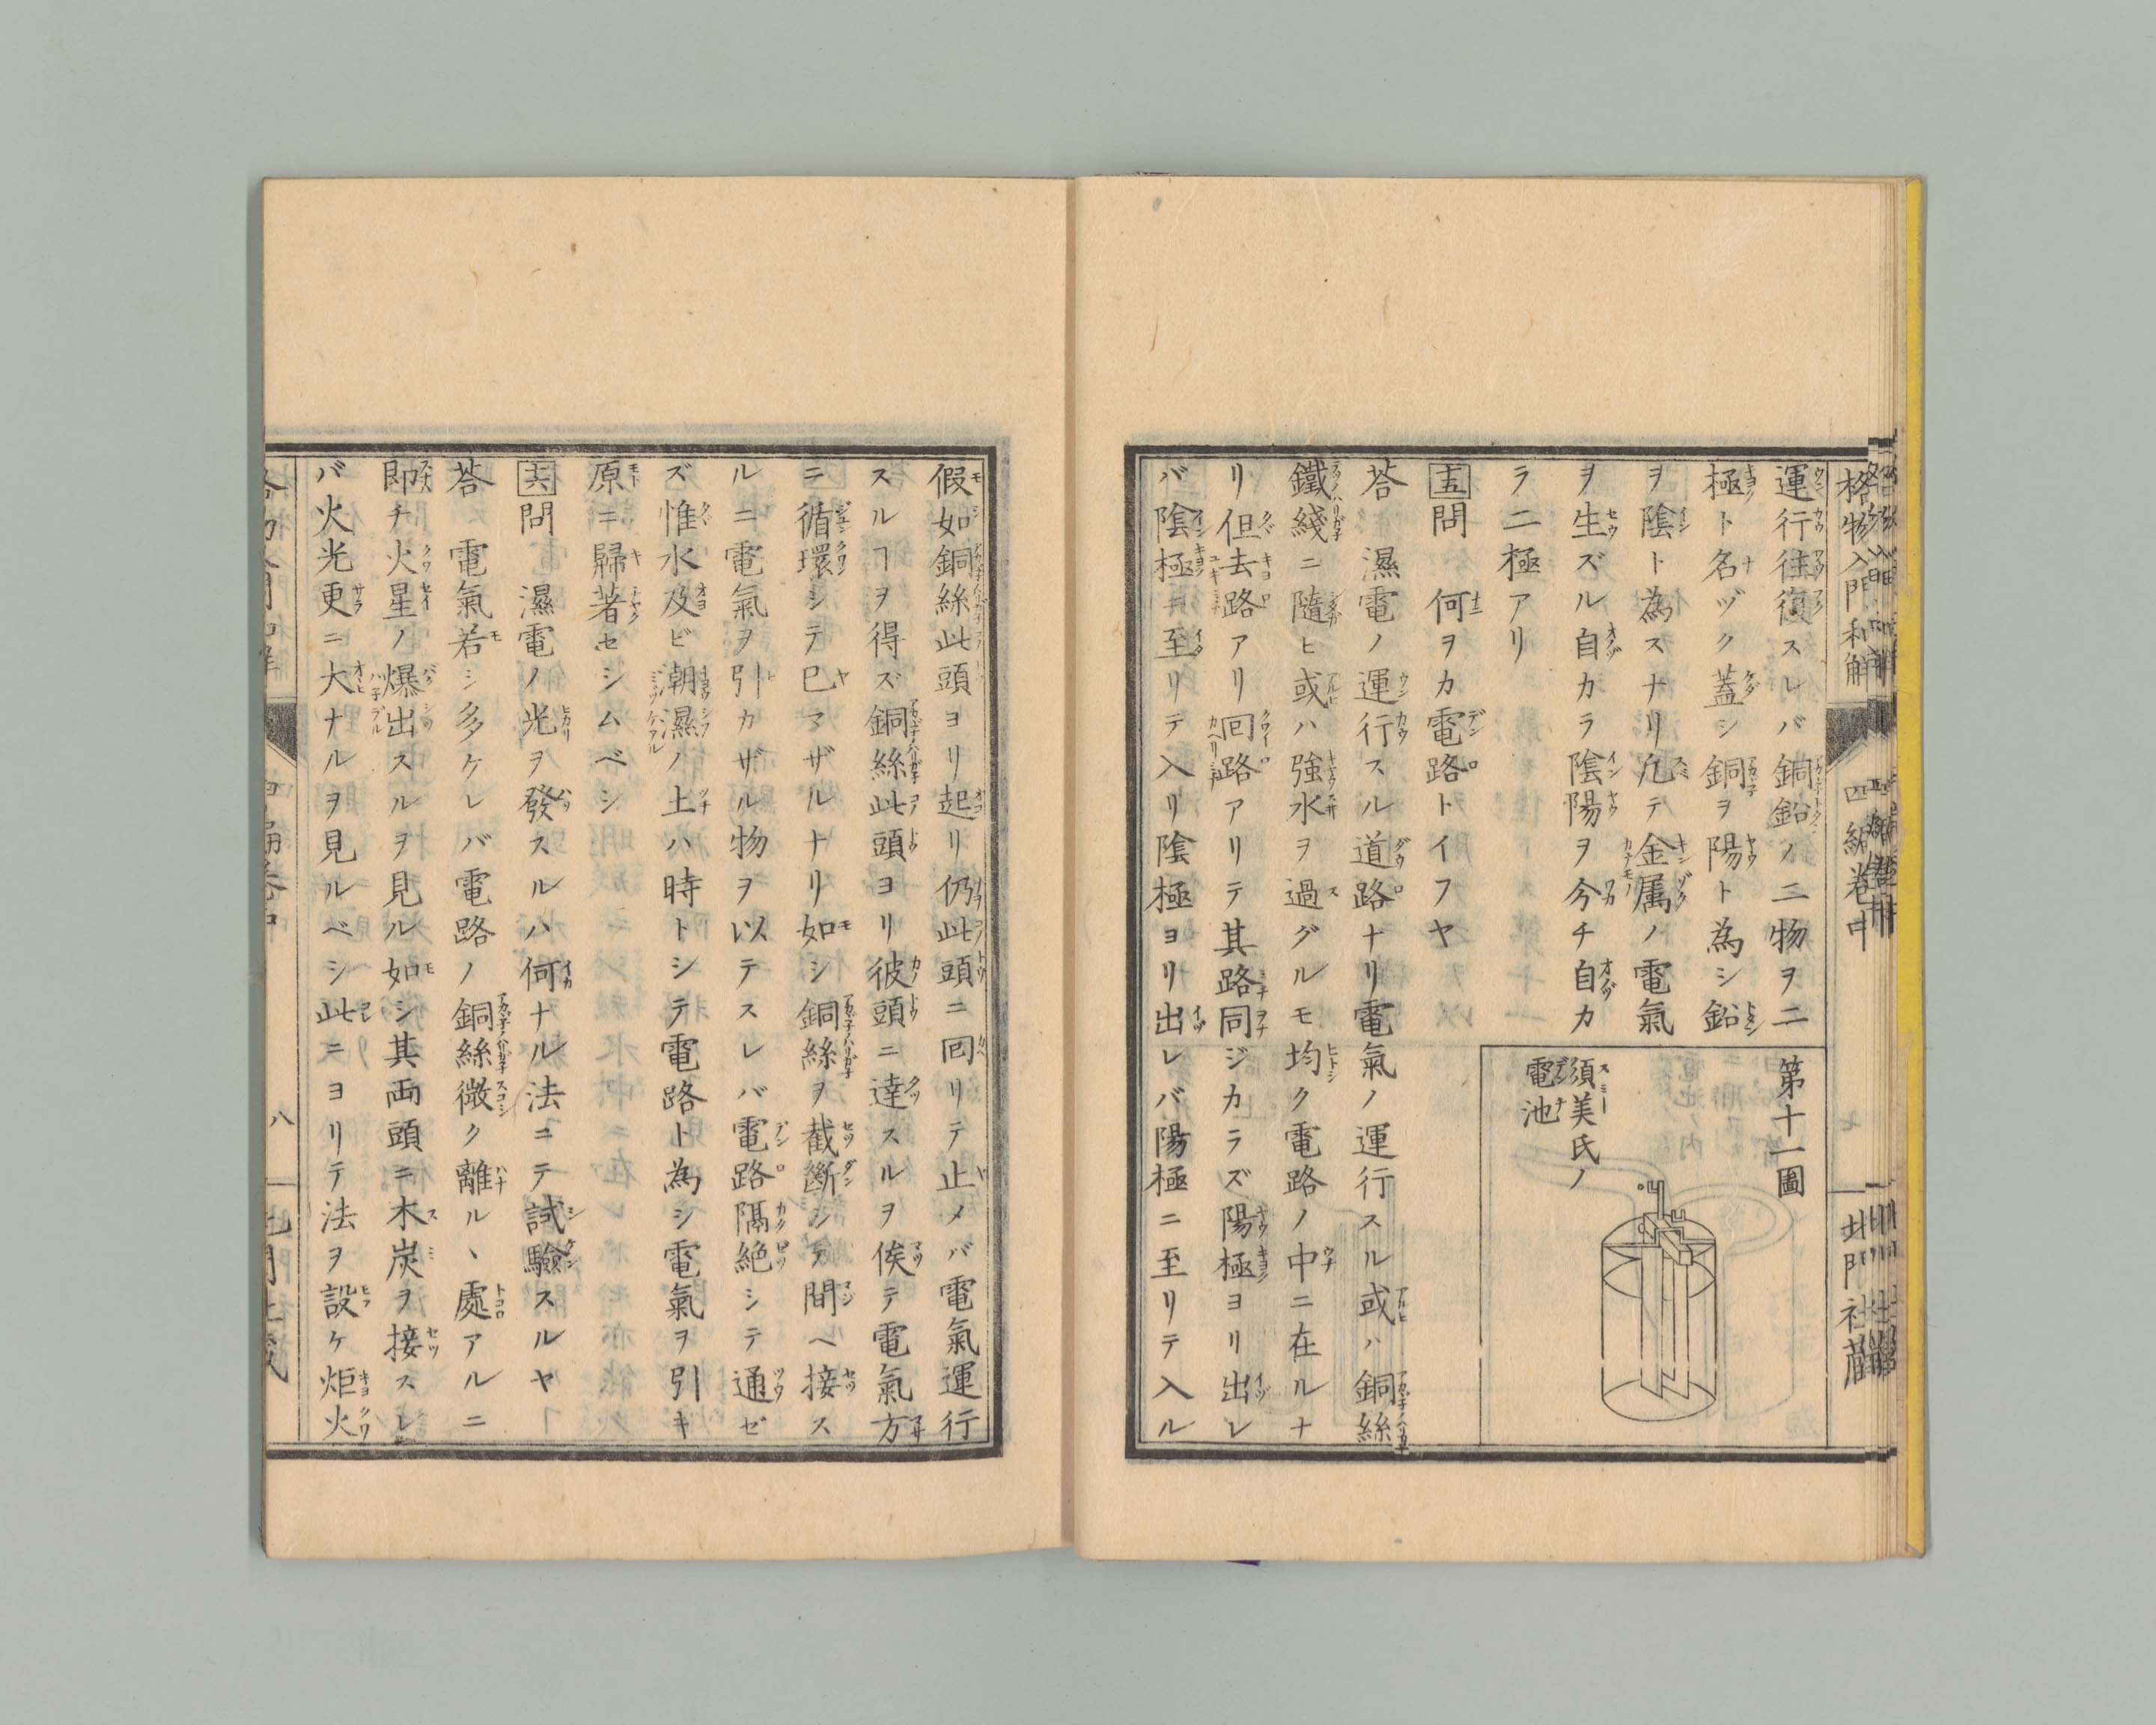 格物入門和解 四編卷中 北門社藏
運行往復スレバ銅鉛ノ二物ヲ二
極ト名ヅク蓋シ銅ヲ陽ト為シ鉛
ヲ陰ト為スナリ凢テ金属ノ電氣
ヲ生ズル自カラ陰陽ヲ今チ自カ
ラ二極アリ
第十一圖
須美氏ノ
電池
十五問 何ヲカ電路トイフヤ
荅 濕電ノ運行スル道路ナリ電氣ノ運行スル或ハ銅絲
鐵綫ニ隨ヒ或ハ強水ヲ過グルモ均ク電路ノ中ニ在ルナ
リ但去路アリ囘路アリテ其路同ジカラズ陽極ヨリ出レ
バ陰極ニ至リテ入リ陰極ヨリ出レバ陽極ニ至リテ入ル
假如銅絲此頭ヨリ起リ仍此頭ニ囘リテ止メバ電氣運行
スルヿヲ得ズ銅絲此頭ヨリ彼頭ニ達スルヲ俟テ電氣方
ニ循環シテ已マザルナリ如シ銅絲ヲ截斷シテ間ヘ接ス
ルニ電氣ヲ引カザル物ヲ以テスレバ電路隔絶シテ通ゼ
ズ惟水及ビ朝濕ノ土ハ時トシテ電路ト為シ電氣ヲ引キ
原ニ歸著セシムベシ
十六問 濕電ノ光ヲ發スルハ何ナル法ニテ試驗スルヤ
荅 電氣若シ多ケレバ電路ノ銅絲微ク離ルヽ處アルニ
即チ火星ノ爆出スルヲ見ル如シ其両頭ニ木炭ヲ接スレ
バ火光更ニ大ナルヲ見ルベシ此ニヨリテ法ヲ設ケ炬火
八